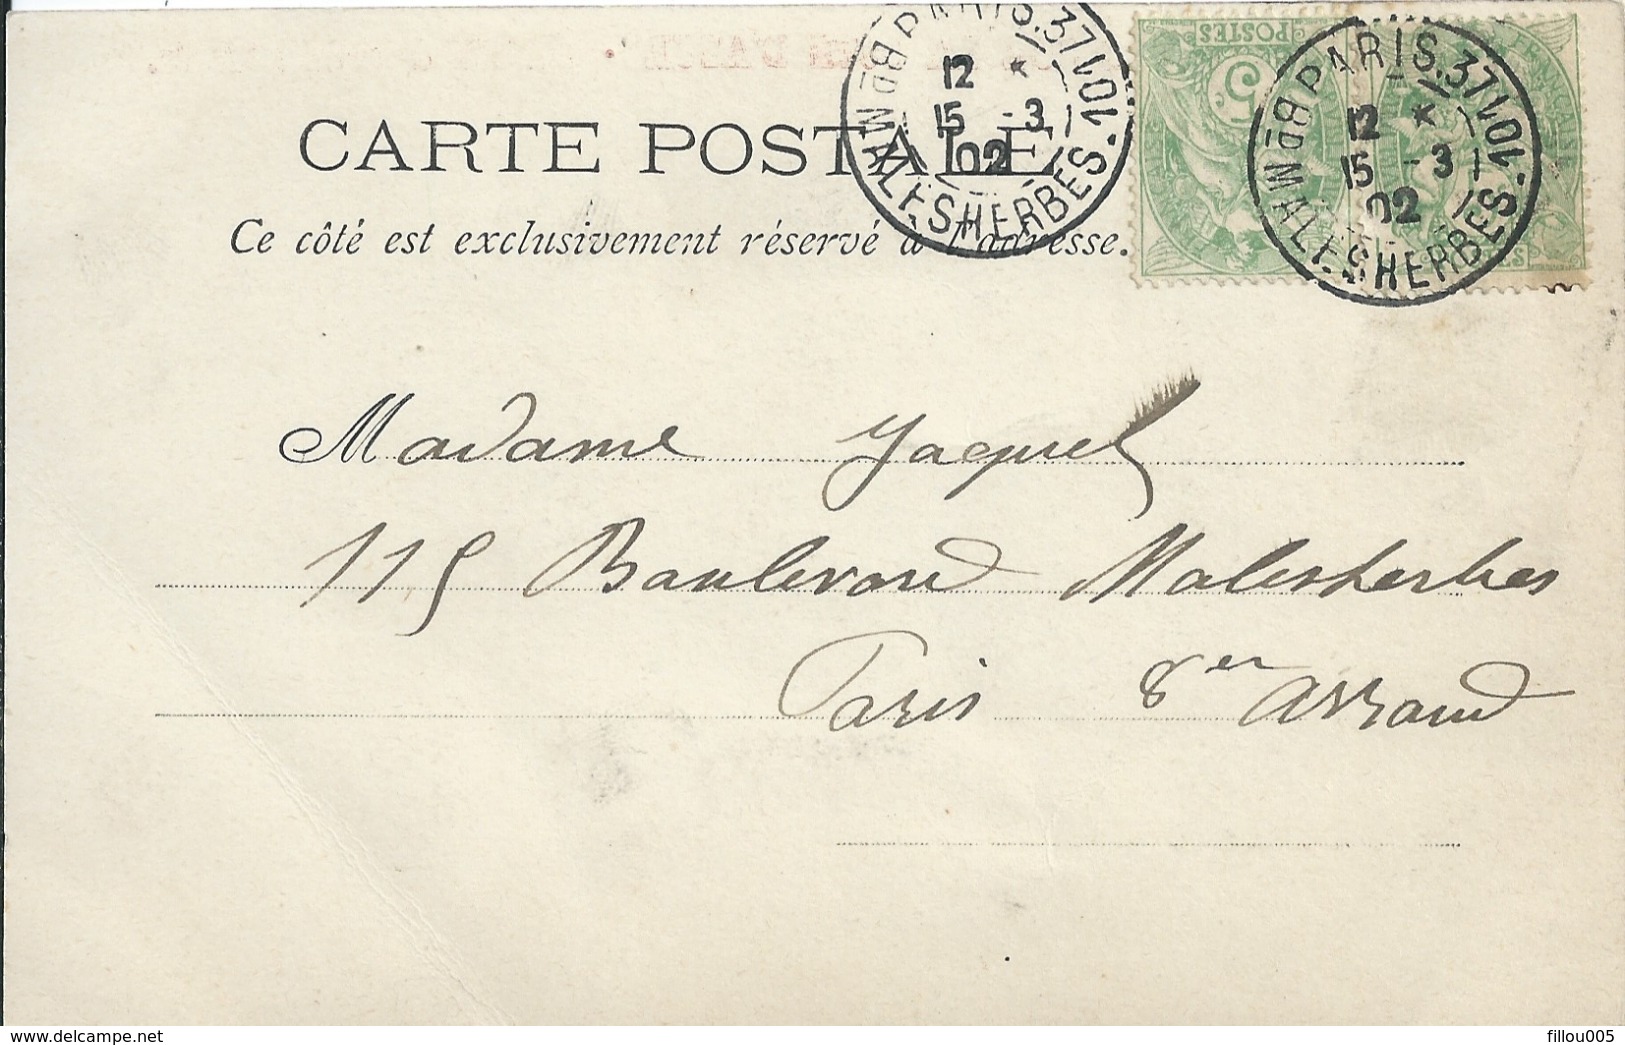 PARIS.37
Bᴰ MALESHERBES.101
12 *
15 -3
02
PARIS.37
Bᴰ MALESHERBES.101
12 *
15 -3
02
POSTES
5
CARTE POSTALE
Ce côté est exclusivement réservé à l'adresse.
Madame Jacquel
115 Boulevard Malesherbes
Paris 8er Arrond
fillou005